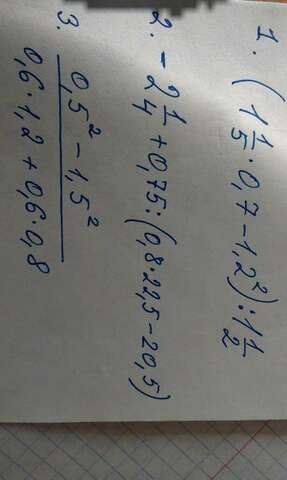 1. (1 1/5 · 0,7 - 1,2²) : 1 1/2
2. - 2 1/4 + 0,75 : (0,8 · 22,5 - 20,5)
3. 0,5² - 1,5²
0,6 · 1,2 + 0,6 · 0,8